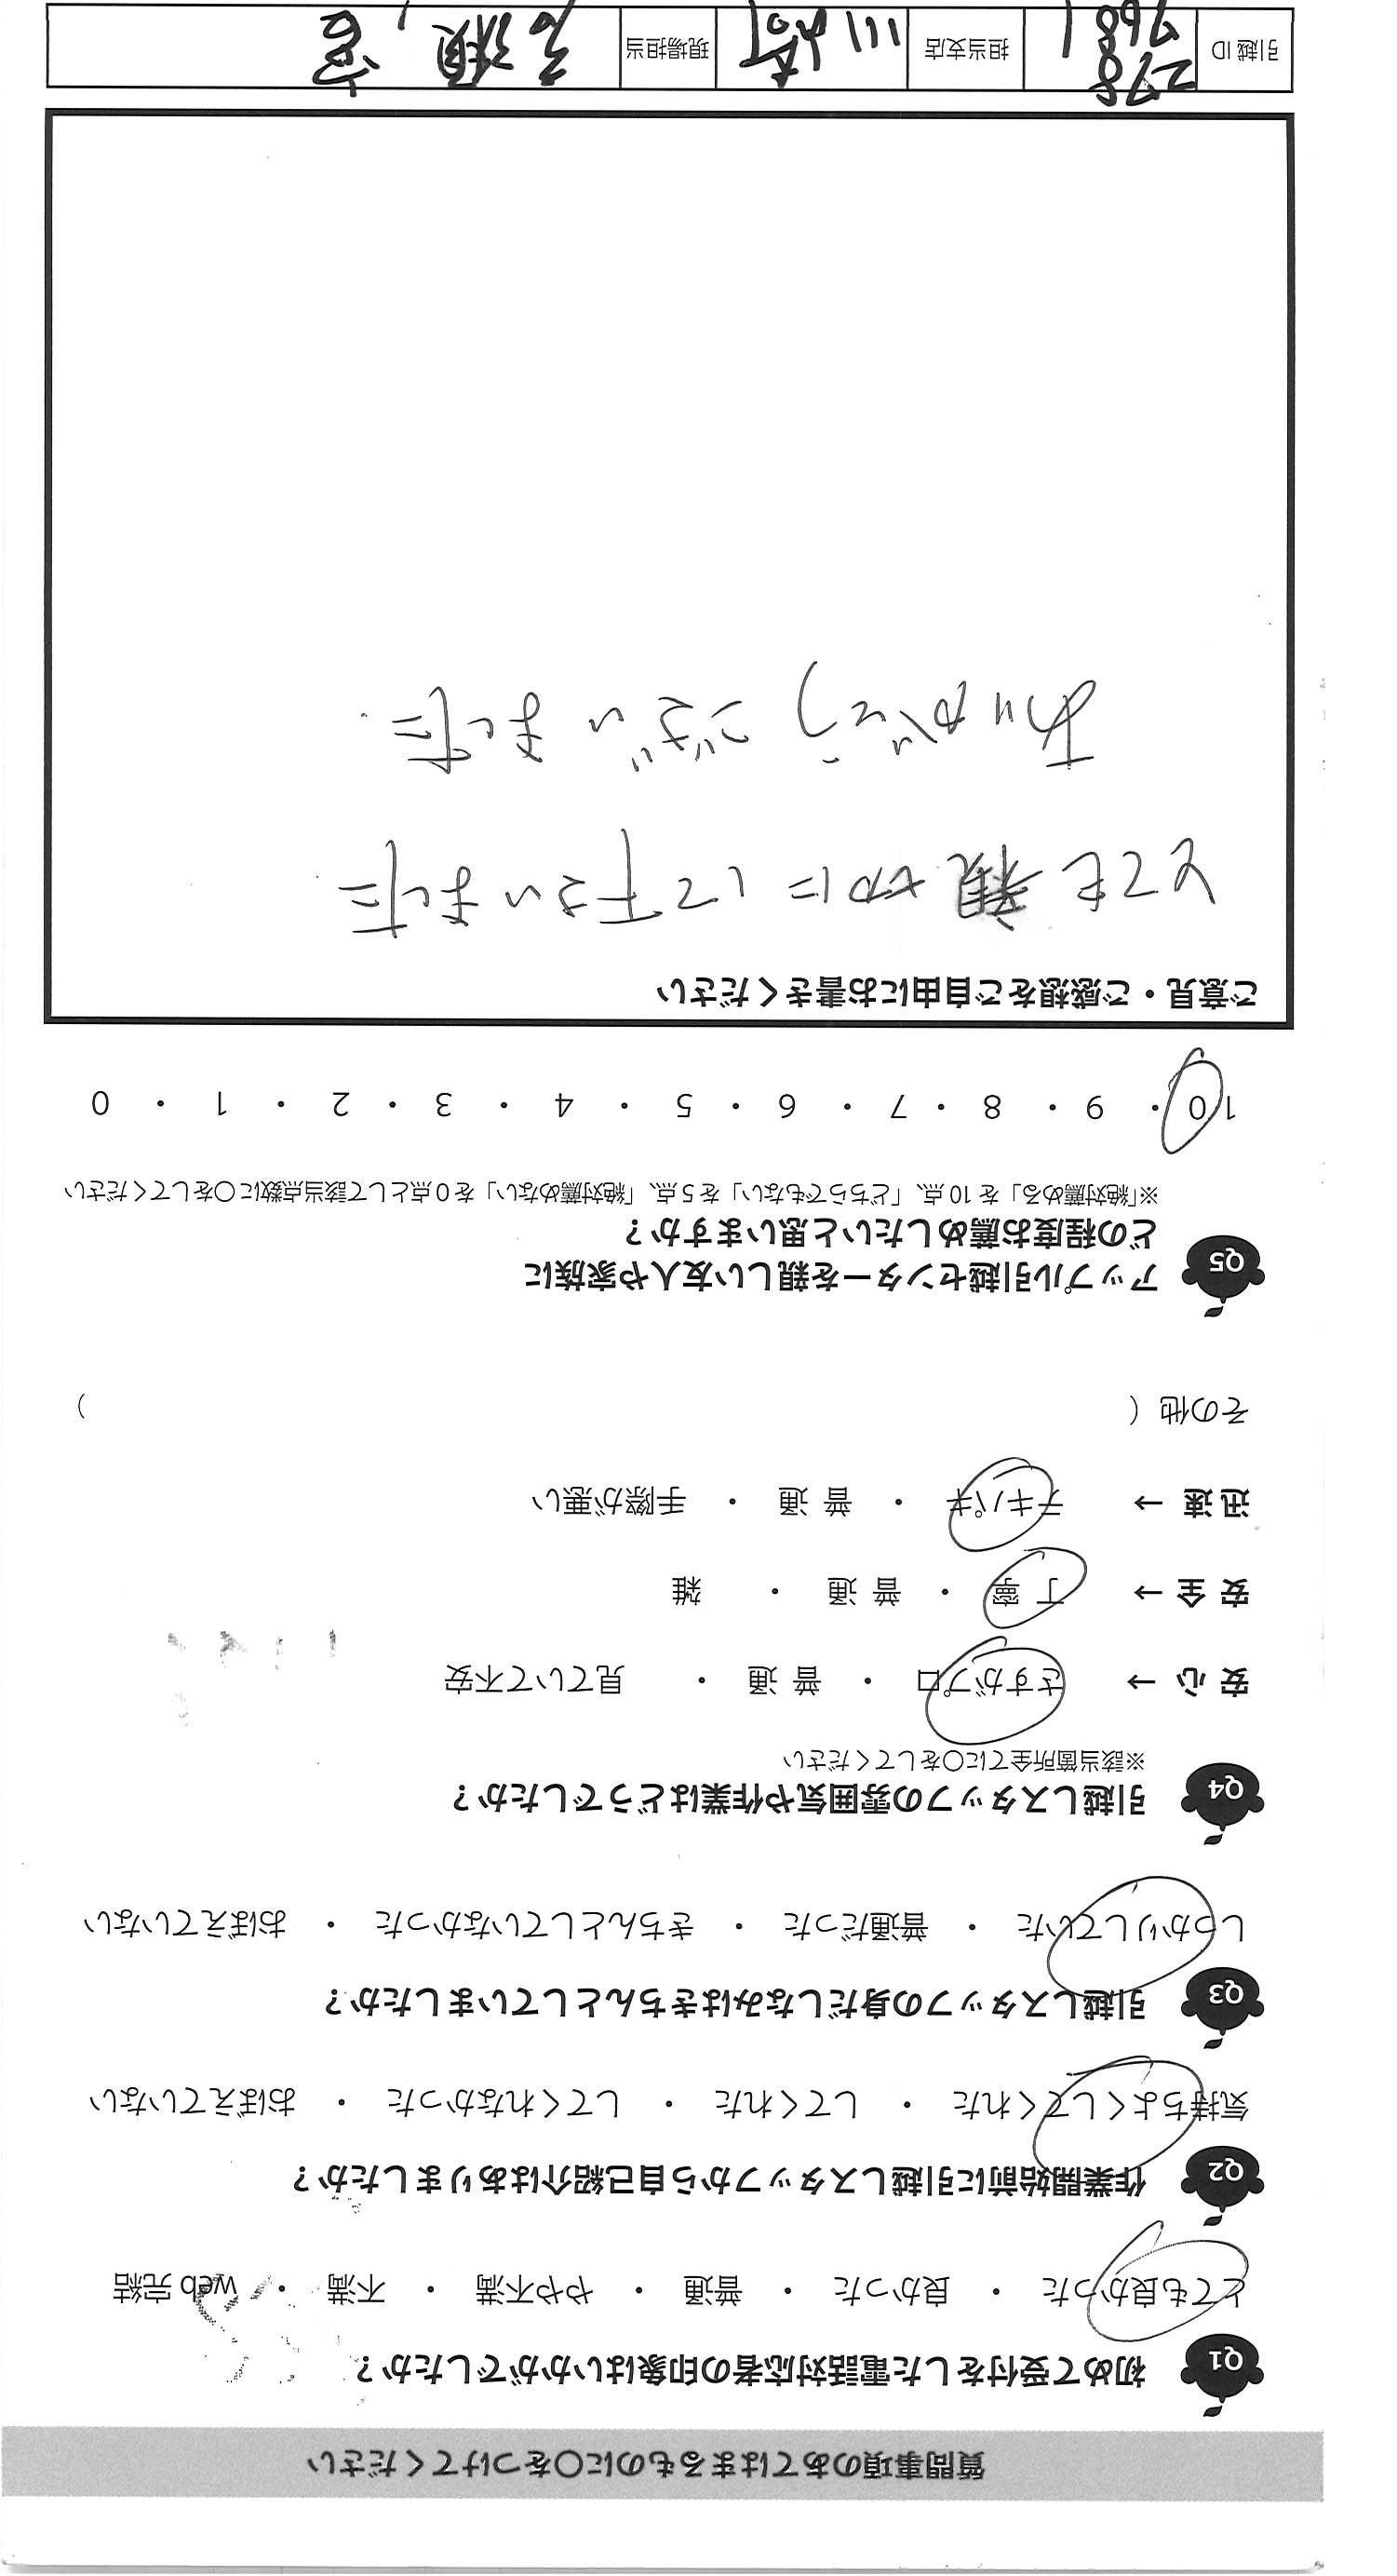 質問事項のあてはまるものに〇をつけてください
Q1 初めて受付をした電話対応者の印象はいかがでしたか？
とても良かった ・ 良かった ・ 普通 ・ やや不満 ・ 不満 ・ web 完結
Q2 作業開始前に引越しスタッフから自己紹介はありましたか？
気持ちよくしてくれた ・ してくれた ・ してくれなかった ・ おぼえていない
Q3 引越しスタッフの身だしなみはきちんとしていましたか？
しっかりしていた ・ 普通だった ・ きちんとしていなかった ・ おぼえていない
Q4 引越しスタッフの雰囲気や作業はどうでしたか？
※該当箇所全てに〇をしてください
安 心 → さすがプロ ・ 普 通 ・ 見ていて不安
安 全 → 丁 寧 ・ 普 通 ・ 雑
迅 速 → テキパキ ・ 普 通 ・ 手際が悪い
その他（ ）
Q5 アップル引越センターを親しい友人や家族に
どの程度お薦めしたいと思いますか？
※「絶対薦める」を 10 点、「どちらでもない」を 5 点、「絶対薦めない」を 0 点として該当点数に〇をしてください
10 ・ 9 ・ 8 ・ 7 ・ 6 ・ 5 ・ 4 ・ 3 ・ 2 ・ 1 ・ 0
ご意見・ご感想をご自由にお書きください
とても親切にして下さいました
ありがとうございました.
引越 ID 278 7681 担当支店 川崎 現場担当